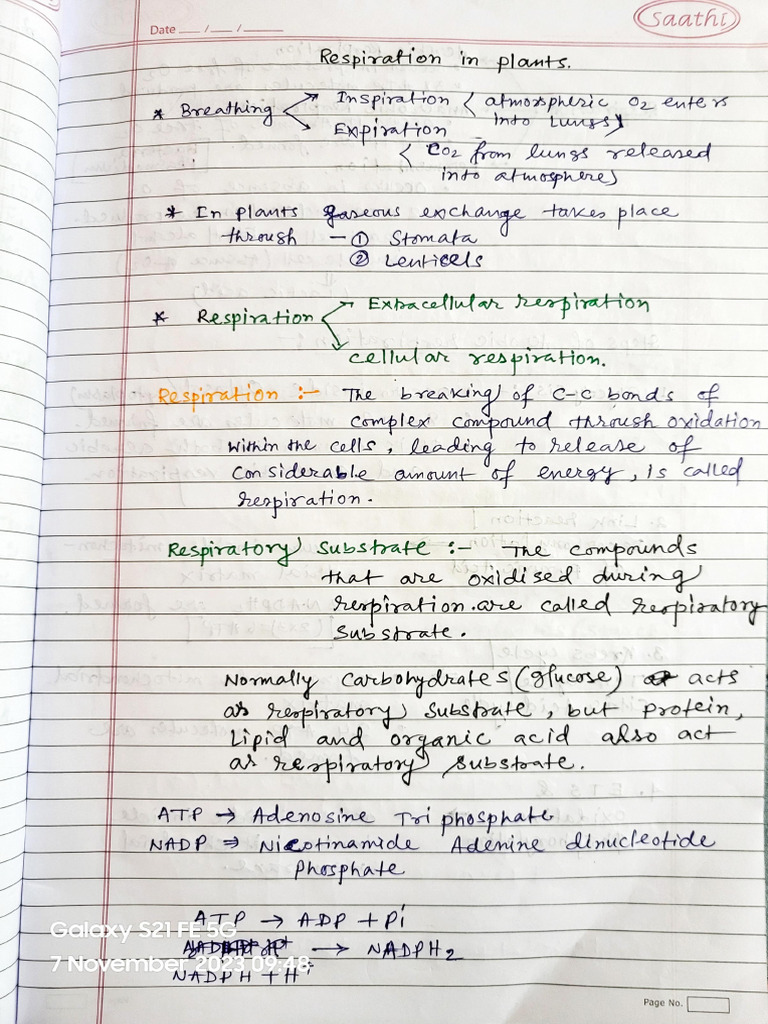 saathi
Date ___/___/_____
Respiration in plants.
* Breathing
Inspiration < atmospheric O2 enters
into Lungs>
Expiration
< CO2 from lungs released
into atmosphere>
* In plants gaseous exchange takes place
through - ① Stomata
② Lenticels
* Respiration
Extracellular respiration
cellular respiration.
Respiration :- The breaking of C-C bonds of
complex compound through oxidation
within the cells, leading to release of
considerable amount of energy, is called
respiration.
Respiratory Substrate :- The compounds
that are oxidised during
respiration are called respiratory
Substrate.
Normally carbohydrates (glucose) acts
as respiratory substrate, but protein,
Lipid and organic acid also act
as respiratory substrate.
ATP → Adenosine Tri phosphate
NADP ⇒ Nicotinamide Adenine dinucleotide
Phosphate
ATP → ADP + Pi
→ NADPH2
NADPH + H+
Galaxy S21 FE 5G
7 November 2023 09:48
Page No.